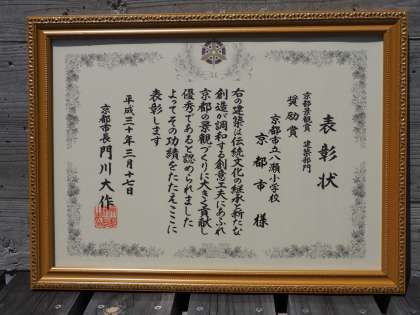 表彰状
京都景観賞 建築部門
奨励賞
京都市立八瀬小学校
京都市 様
右の建築は伝統文化の継承と新たな
創造が調和する創意工夫にあふれ
京都の景観づくりに大きく貢献し
優秀であると認められました
よってその功績をたたえここに
表彰します
平成三十年三月十七日
京都市長 門川大作